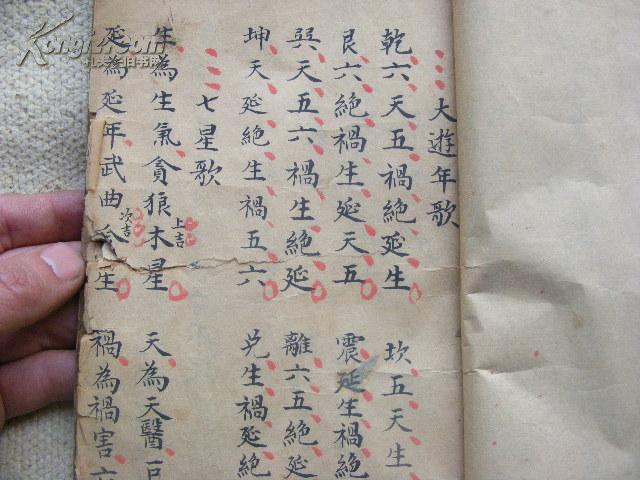 大遊年歌
乾六天五禍絶延生 坎五天生
艮六絶禍生延天五 震延生禍絶
巽天五六禍生絶延 離六五絶延
坤天延絶生禍五六 兌生禍延絶
七星歌
生為生氣貪狼木星 上吉 天為天醫巨
延為延年武曲金生 次吉 禍為禍害